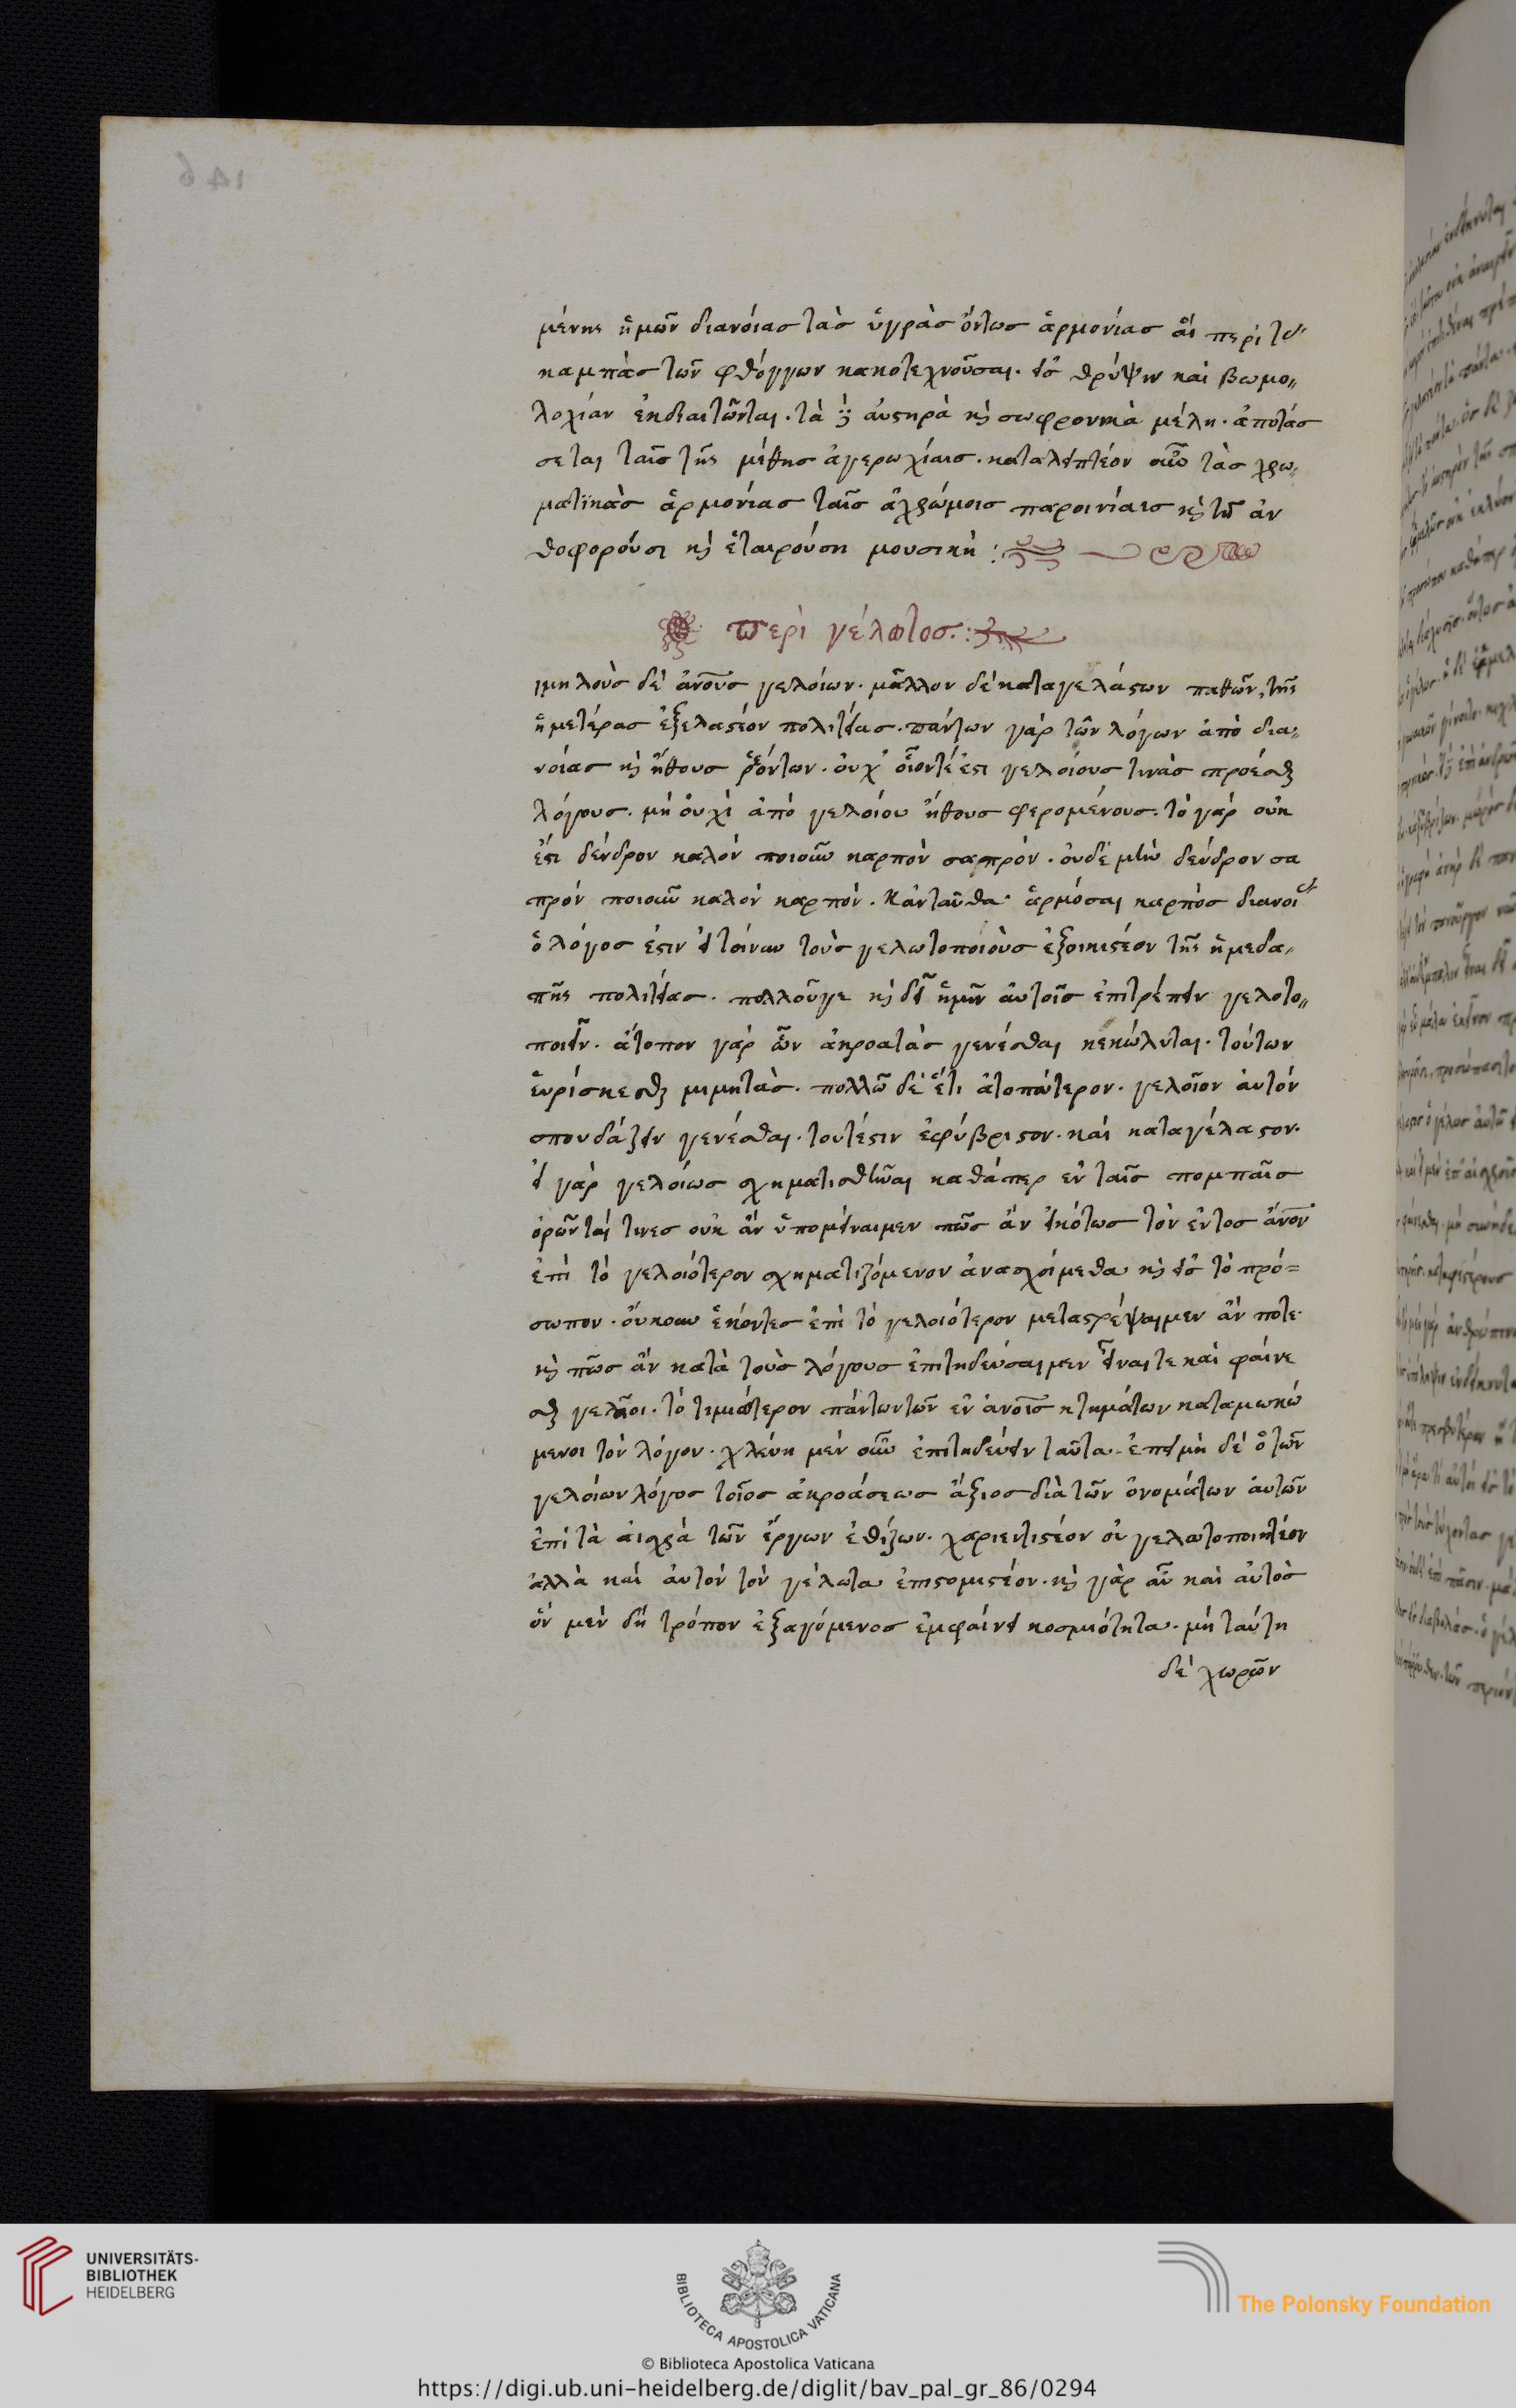 μένης ἡμῶν διανοίας τὰς ὑγρὰς ὄντως ἁρμονίας αἳ περὶ τὰς
καμπὰς τῶν φθόγγων κακοτεχνοῦσαι. εἰς θρύψιν καὶ βωμο〃
λοχίαν ἐκδιαιτῶνται. τὰ δὲ αὐστηρὰ καὶ σωφρονικὰ μέλη. ἀποτάσ
σεται ταῖς τῆς μέθης ἀγερωχίαις. καταλειπτέον οὖν τὰς χρω〃
ματϊκὰς ἁρμονίας ταῖς ἀχρώμοις παροινίαις καὶ τῇ ἀν
θοφορούσῃ καὶ ἑταιρούσῃ μουσικῇ :
περὶ γέλωτος.:
μιμηλοὺς δὲ ἀνους γελοίων. μᾶλλον δὲ καταγελάστων παθῶν, τῆς
ἡμετέρας ἐξελαστέον πολιτείας. πάντων γὰρ τῶν λόγων ἀπὸ δια〃
νοίας καὶ ἤθους ῥεόντων. οὐχ οἷόντέ ἐστι γελοίους τινὰς προέσθαι
λόγους. μὴ οὐχὶ ἀπὸ γελοίου ἤθους φερομένους. τὸ γὰρ οὐκ
ἔστι δένδρον καλὸν ποιοῦν καρπὸν σαπρόν. οὐδὲ μὴν δένδρον σα
πρὸν ποιοῦν καλὸν καρπόν. κἀνταῦθα ἁρμόσαι καρπὸς διανοίας
ὁ λόγος ἐστὶν εἰ τοίνυν τοὺς γελωτοποιοὺς ἐξοικιστέον τῆς ἡμεδα〃
πῆς πολιτείας. πολλοῦγε καὶ δεῖ ἡμῖν αὐτοῖς ἐπιτρέπειν γελοτο〃
ποιεῖν. ἄτοπον γὰρ ὧν ἀκροατὰς γενέσθαι κεκώλυται. τούτων
εὑρίσκεσθαι μιμητάς. πολλῷ δὲ ἔτι ἀτοπώτερον. γελοῖον αὐτὸν
σπουδάζειν γενέσθαι. τουτέστιν ἐφύβριστον. καὶ καταγέλαστον.
εἰ γὰρ γελοίως σχηματισθῆναι καθάπερ ἐν ταῖς πομπαῖς
ὁρῶνταί τινες οὐκ ἂν ὑπομείναιμεν πῶς ἂν εἰκότως τὸν ἐντος ἄνον
ἐπὶ τὸ γελοιότερον σχηματιζόμενον ἀνασχοίμεθα καὶ εἰς τὸ πρό=
σωπον. οὔκουν ἑκόντες ἐπὶ τὸ γελοιότερον μεταστρέψαιμεν ἄν ποτε.
καὶ πῶς ἂν κατὰ τοὺς λόγους ἐπιτηδεύσαιμεν εἶναι τε καὶ φαίνε
σθαι γελοῖοι. τὸ τιμιώτερον πάντων τῶν ἐν ἀνοις κτημάτων καταμωκώ
μενοι τὸν λόγον. χλεύη μὲν οὖν ἐπιτηδεύειν ταῦτα. ἐπεὶ μὴ δὲ ὁ τῶν
γελοίων λόγος τοῖος ἀκροάσεως ἄξιος διὰ τῶν ὀνομάτων αὐτῶν
ἐπὶ τὰ αἰσχρὰ τῶν ἔργων ἐθίζων. χαριεντιστέον οὐ γελωτοποιητέον
ἀλλὰ καὶ αὐτὸν τὸν γέλωτα ἐπιστομιστέον. καὶ γὰρ αὖ καὶ αὐτὸς
ὃν μὲν δὴ τρόπον ἐξαγόμενος ἐμφαίνει κοσμιότητα. μὴ ταύτῃ
δὲ χωρῶν
146
UNIVERSITÄTS-
BIBLIOTHEK
HEIDELBERG
BIBLIOTECA APOSTOLICA VATICANA
The Polonsky Foundation
© Biblioteca Apostolica Vaticana
https://digi.ub.uni-heidelberg.de/diglit/bav_pal_gr_86/0294